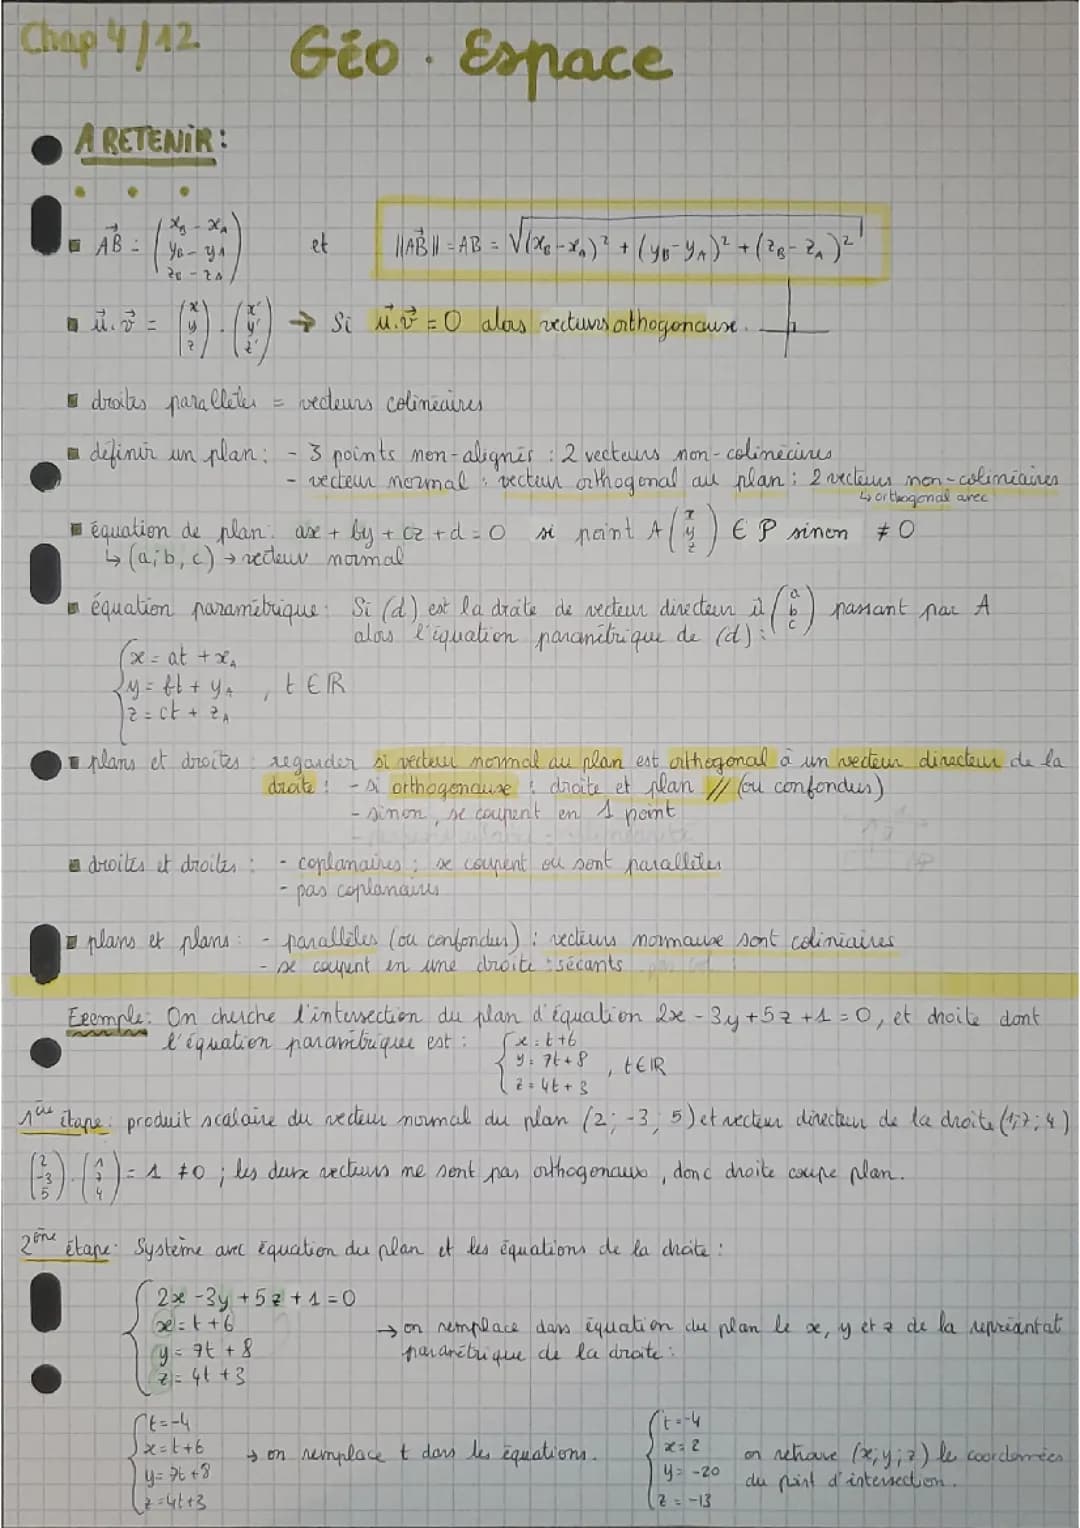 Chap 4/12
Géo. Espace
A RETENIR:
AB = (xB - xA / yB - yA / zB - zA) et ||AB|| = AB = √(xB-xA)² + (yB-yA)² + (zB-zA)²
u.v = (x y z) . (x' y' z') → Si u.v = 0 alors vecteurs orthogonaux.
droites parallèles = vecteurs colinéaires
définir un plan: - 3 points non-alignés : 2 vecteurs non-colinéaires
- vecteur normal : vecteur orthogonal au plan : 2 vecteurs non-colinéaires
↳ orthogonal avec
équation de plan: ax + by + cz + d = 0 si point A (x y z) ∈ P sinon ≠ 0
↳ (a; b, c) → vecteur normal
équation paramétrique: Si (d) est la droite de vecteur directeur u (a b c) passant par A
alors l'équation paramétrique de (d) :
{x = at + xA
{y = bt + yA , t ∈ R
{z = ct + zA
plans et droites : regarder si vecteur normal du plan est orthogonal à un vecteur directeur de la
droite : - si orthogonaux : droite et plan // (ou confondus)
- sinon, se coupent en 1 point
droites et droites : - coplanaires : se coupent ou sont parallèles
- pas coplanaires
plans et plans : - parallèles (ou confondus) : vecteurs normaux sont colinéaires
- se coupent en une droite : sécants
Exemple: On cherche l'intersection du plan d'équation 2x - 3y + 5z + 1 = 0, et droite dont
l'équation paramétrique est : {x = t+6
{y = 7t+8 , t∈R
{z = 4t+3
1ère étape: produit scalaire du vecteur normal du plan (2; -3; 5) et vecteur directeur de la droite (1; 7; 4)
(2 -3 5) . (1 7 4) = 1 ≠ 0 ; les deux vecteurs ne sont pas orthogonaux, donc droite coupe plan.
2ème étape: Système avec équation du plan et les équations de la droite :
{2x - 3y + 5z + 1 = 0
{x = t + 6
→ on remplace dans équation du plan le x, y et z de la représentat
{y = 7t + 8
paramétrique de la droite :
{z = 4t + 3
{t = -4
{x = t+6
{y = 7t+8
{z = 4t+3
→ on remplace t dans les équations.
{t = -4
{x = 2
{y = -20
{z = -13
on retrouve (x; y; z) le coordonnées
du point d'intersection.